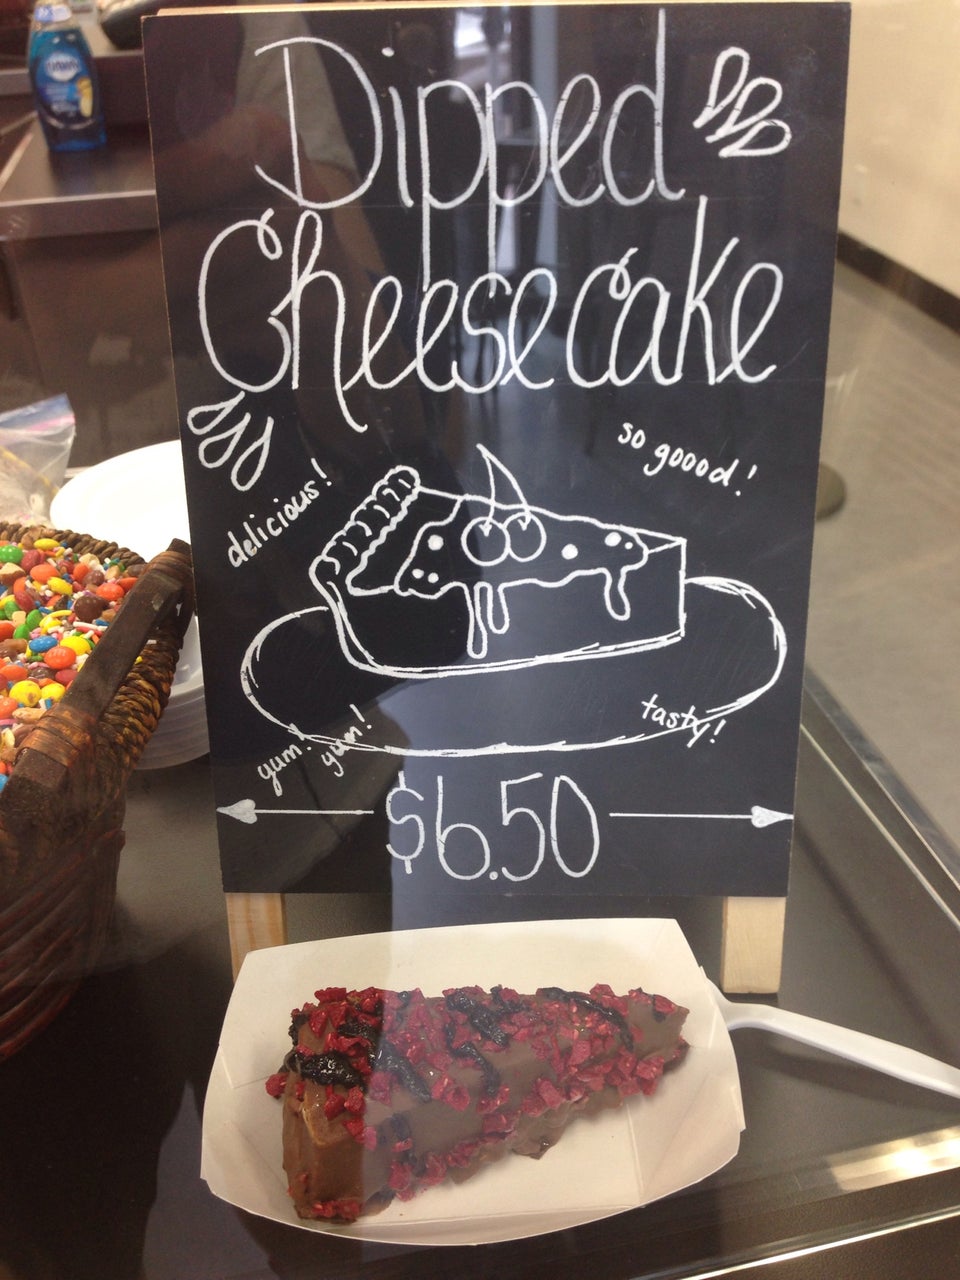 Dipped
Cheesecake
so goood!
delicious!
tasty!
yum! yum!
$6.50
DAWN